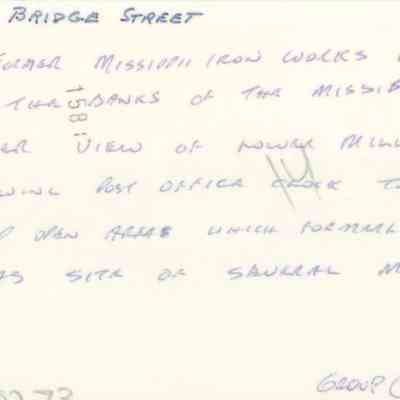 BRIDGE STREET
FORMER MISSIPPI IRON WORKS
THE BANKS OF THE MISSIS
VIEW OF LOWER MILL
POST OFFICE CLOCK
OPEN AREAS WHICH FORMERL
AS SITE OF SEVERAL M
14
GROUP